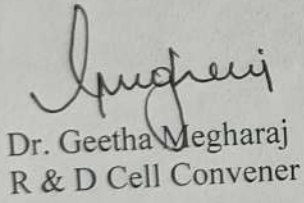 Dr. Geetha Megharaj
R & D Cell Convener